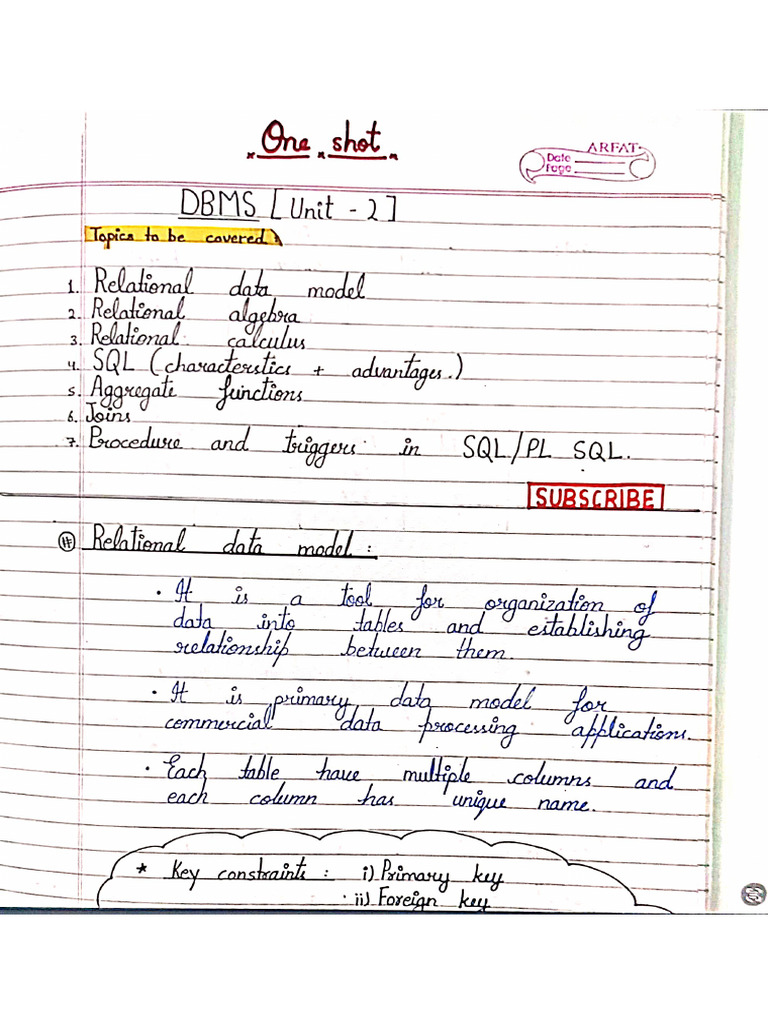 One shot
ARFAT
Date
Page
DBMS [Unit - 2]
Topics to be covered:
1. Relational data model
2. Relational algebra
3. Relational calculus
4. SQL (characterstics + advantages.)
5. Aggregate functions
6. Joins
7. Procedure and triggers in SQL/PL SQL.
SUBSCRIBE
# Relational data model :
• It is a tool for organization of
data into tables and establishing
relationship between them.
• It is primary data model for
commercial data processing applications.
• Each table have multiple columns and
each column has unique name.
* Key constraints : i) Primary key
ii) Foreign key